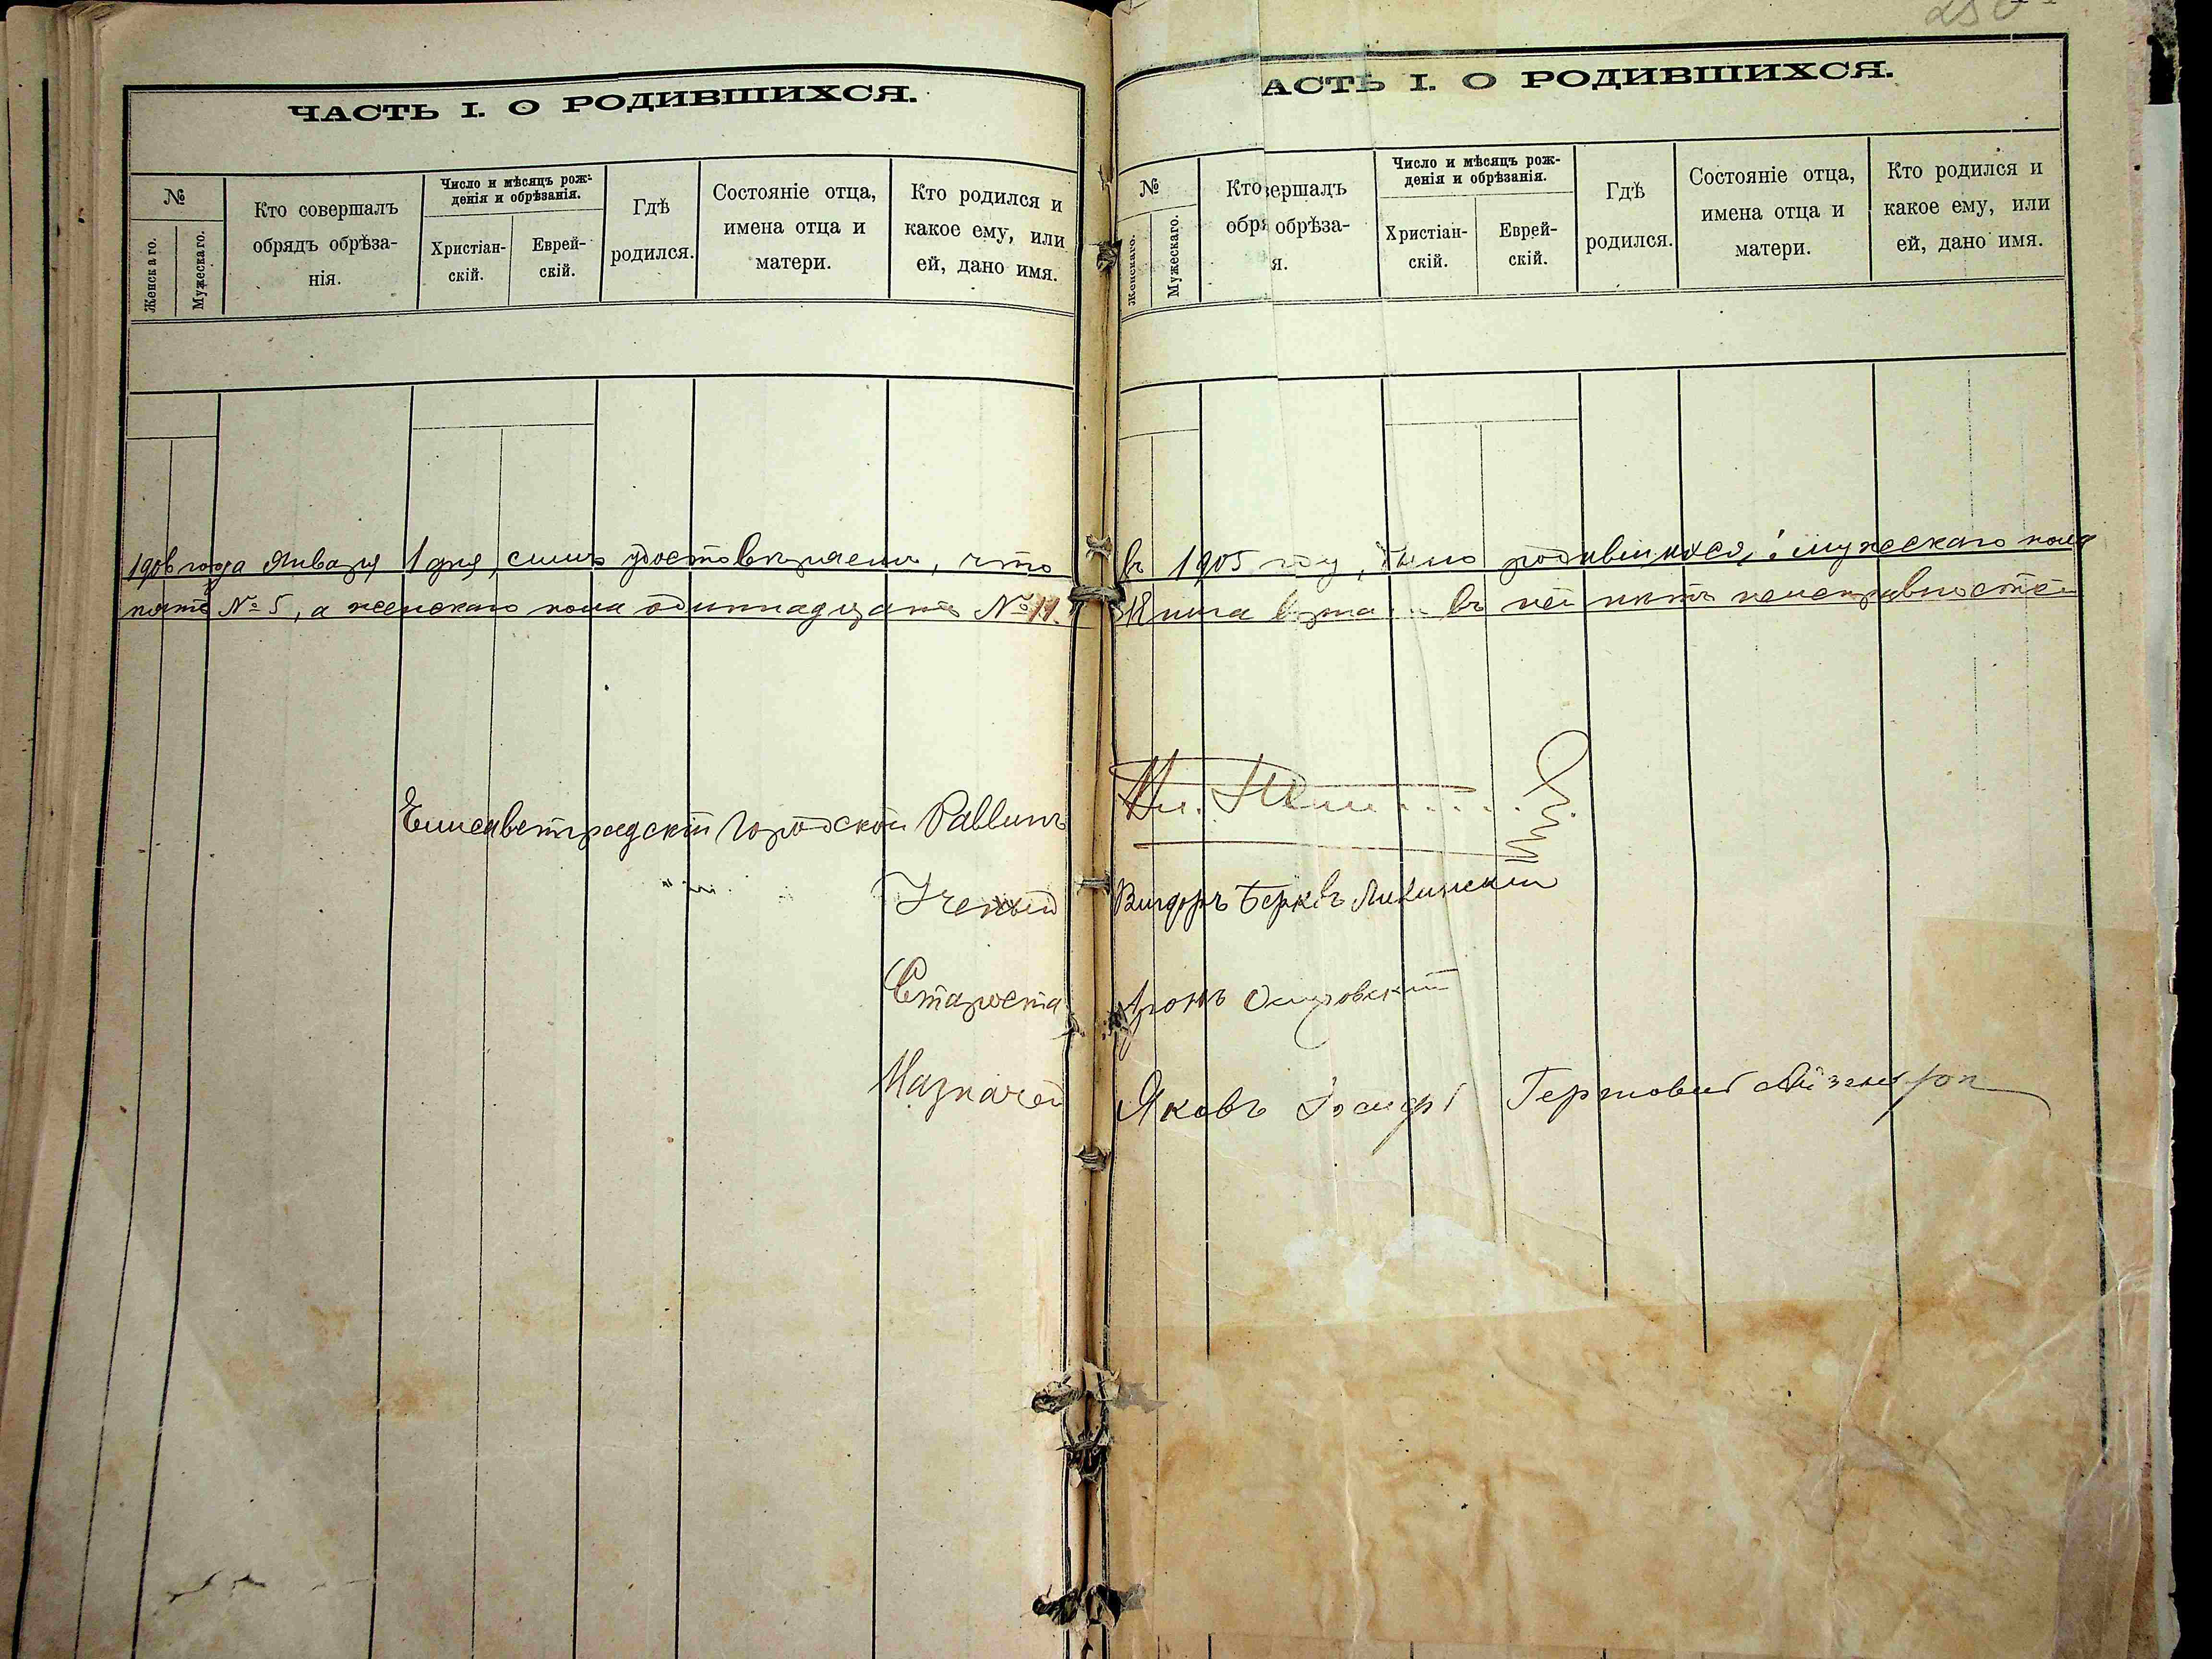 ЧАСТЬ I. О РОДИВШИХСЯ.
№
Женскаго.
Мужескаго.
Кто совершалъ
обрядъ обрѣза-
нія.
Число и мѣсяцъ рож-
денія и обрѣзанія.
Христіан-
скій.
Еврей-
скій.
Гдѣ
родился.
Состояніе отца,
имена отца и
матери.
Кто родился и
какое ему, или
ей, дано имя.
АСТЬ I. О РОДИВШИХСЯ.
№
Женскаго.
Мужескаго.
Кто вершалъ
обря обрѣза-
я.
Число и мѣсяцъ рож-
денія и обрѣзанія.
Христіан-
скій.
Еврей-
скій.
Гдѣ
родился.
Состояніе отца,
имена отца и
матери.
Кто родился и
какое ему, или
ей, дано имя.
1906 года Января 1 дня, симъ удостовѣряемъ, что въ 1905 году, было родившихся: мужескаго пола
пять № 5, а женскаго пола одиннадцать № 11. въ ней нѣтъ неисправностей
Елисаветградскій Городской Раввинъ
Ученый Вигдоръ Берковъ
Староста Аронъ Островскій
Казначей Яковъ Іосифъ Гершовичъ